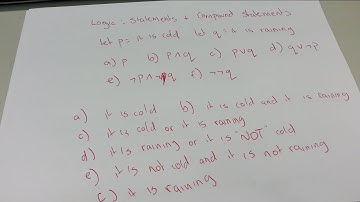 Logic: Statements + Compound Statements
let p = it is cold let q: it is raining
a) p b) p∧q c) p∪q d) q∨¬p
e) ¬p∧¬q f) ¬¬q
a) it is cold b) it is cold and it is raining
c) it is cold or it is raining
d) it is raining or it is "NOT" cold
e) it is not cold and it is not raining
f) it is raining